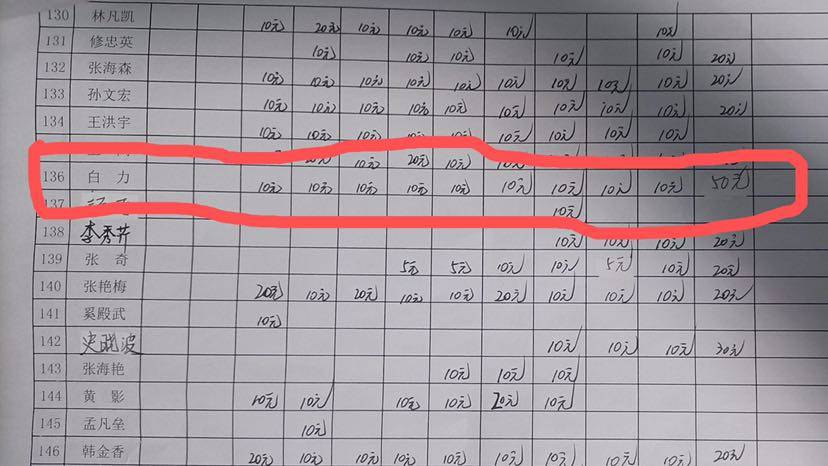 130 林凡凯 10元 20元 10元 10元 10元 10元 10元
131 修忠英 10元 10元 10元 10元 10元 20元
132 张海森 10元 10元 10元 10元 10元 10元 10元 10元 10元 20元
133 孙文宏 10元 10元 10元 10元 10元 10元 10元 10元 10元 20元
134 王洪宇 10元 10元 10元 10元 10元 10元 10元 10元 10元
20元 10元 20元 10元 10元
136 白力 10元 10元 10元 10元 10元 10元 10元 10元 10元 50元
137 10元
138 李秀芹 10元 10元 10元 20元
139 张奇 5元 5元 10元 10元 5元 10元 20元
140 张艳梅 20元 10元 20元 10元 10元 20元 10元 10元 10元 20元
141 奚殿武 10元
142 史晓波 10元 10元 10元 30元
143 张海艳 10元 10元 10元
144 黄影 10元 10元 10元 10元 20元 10元
145 孟凡垒 10元
146 韩金香 20元 10元 10元 10元 10元 10元 10元 10元 10元 20元